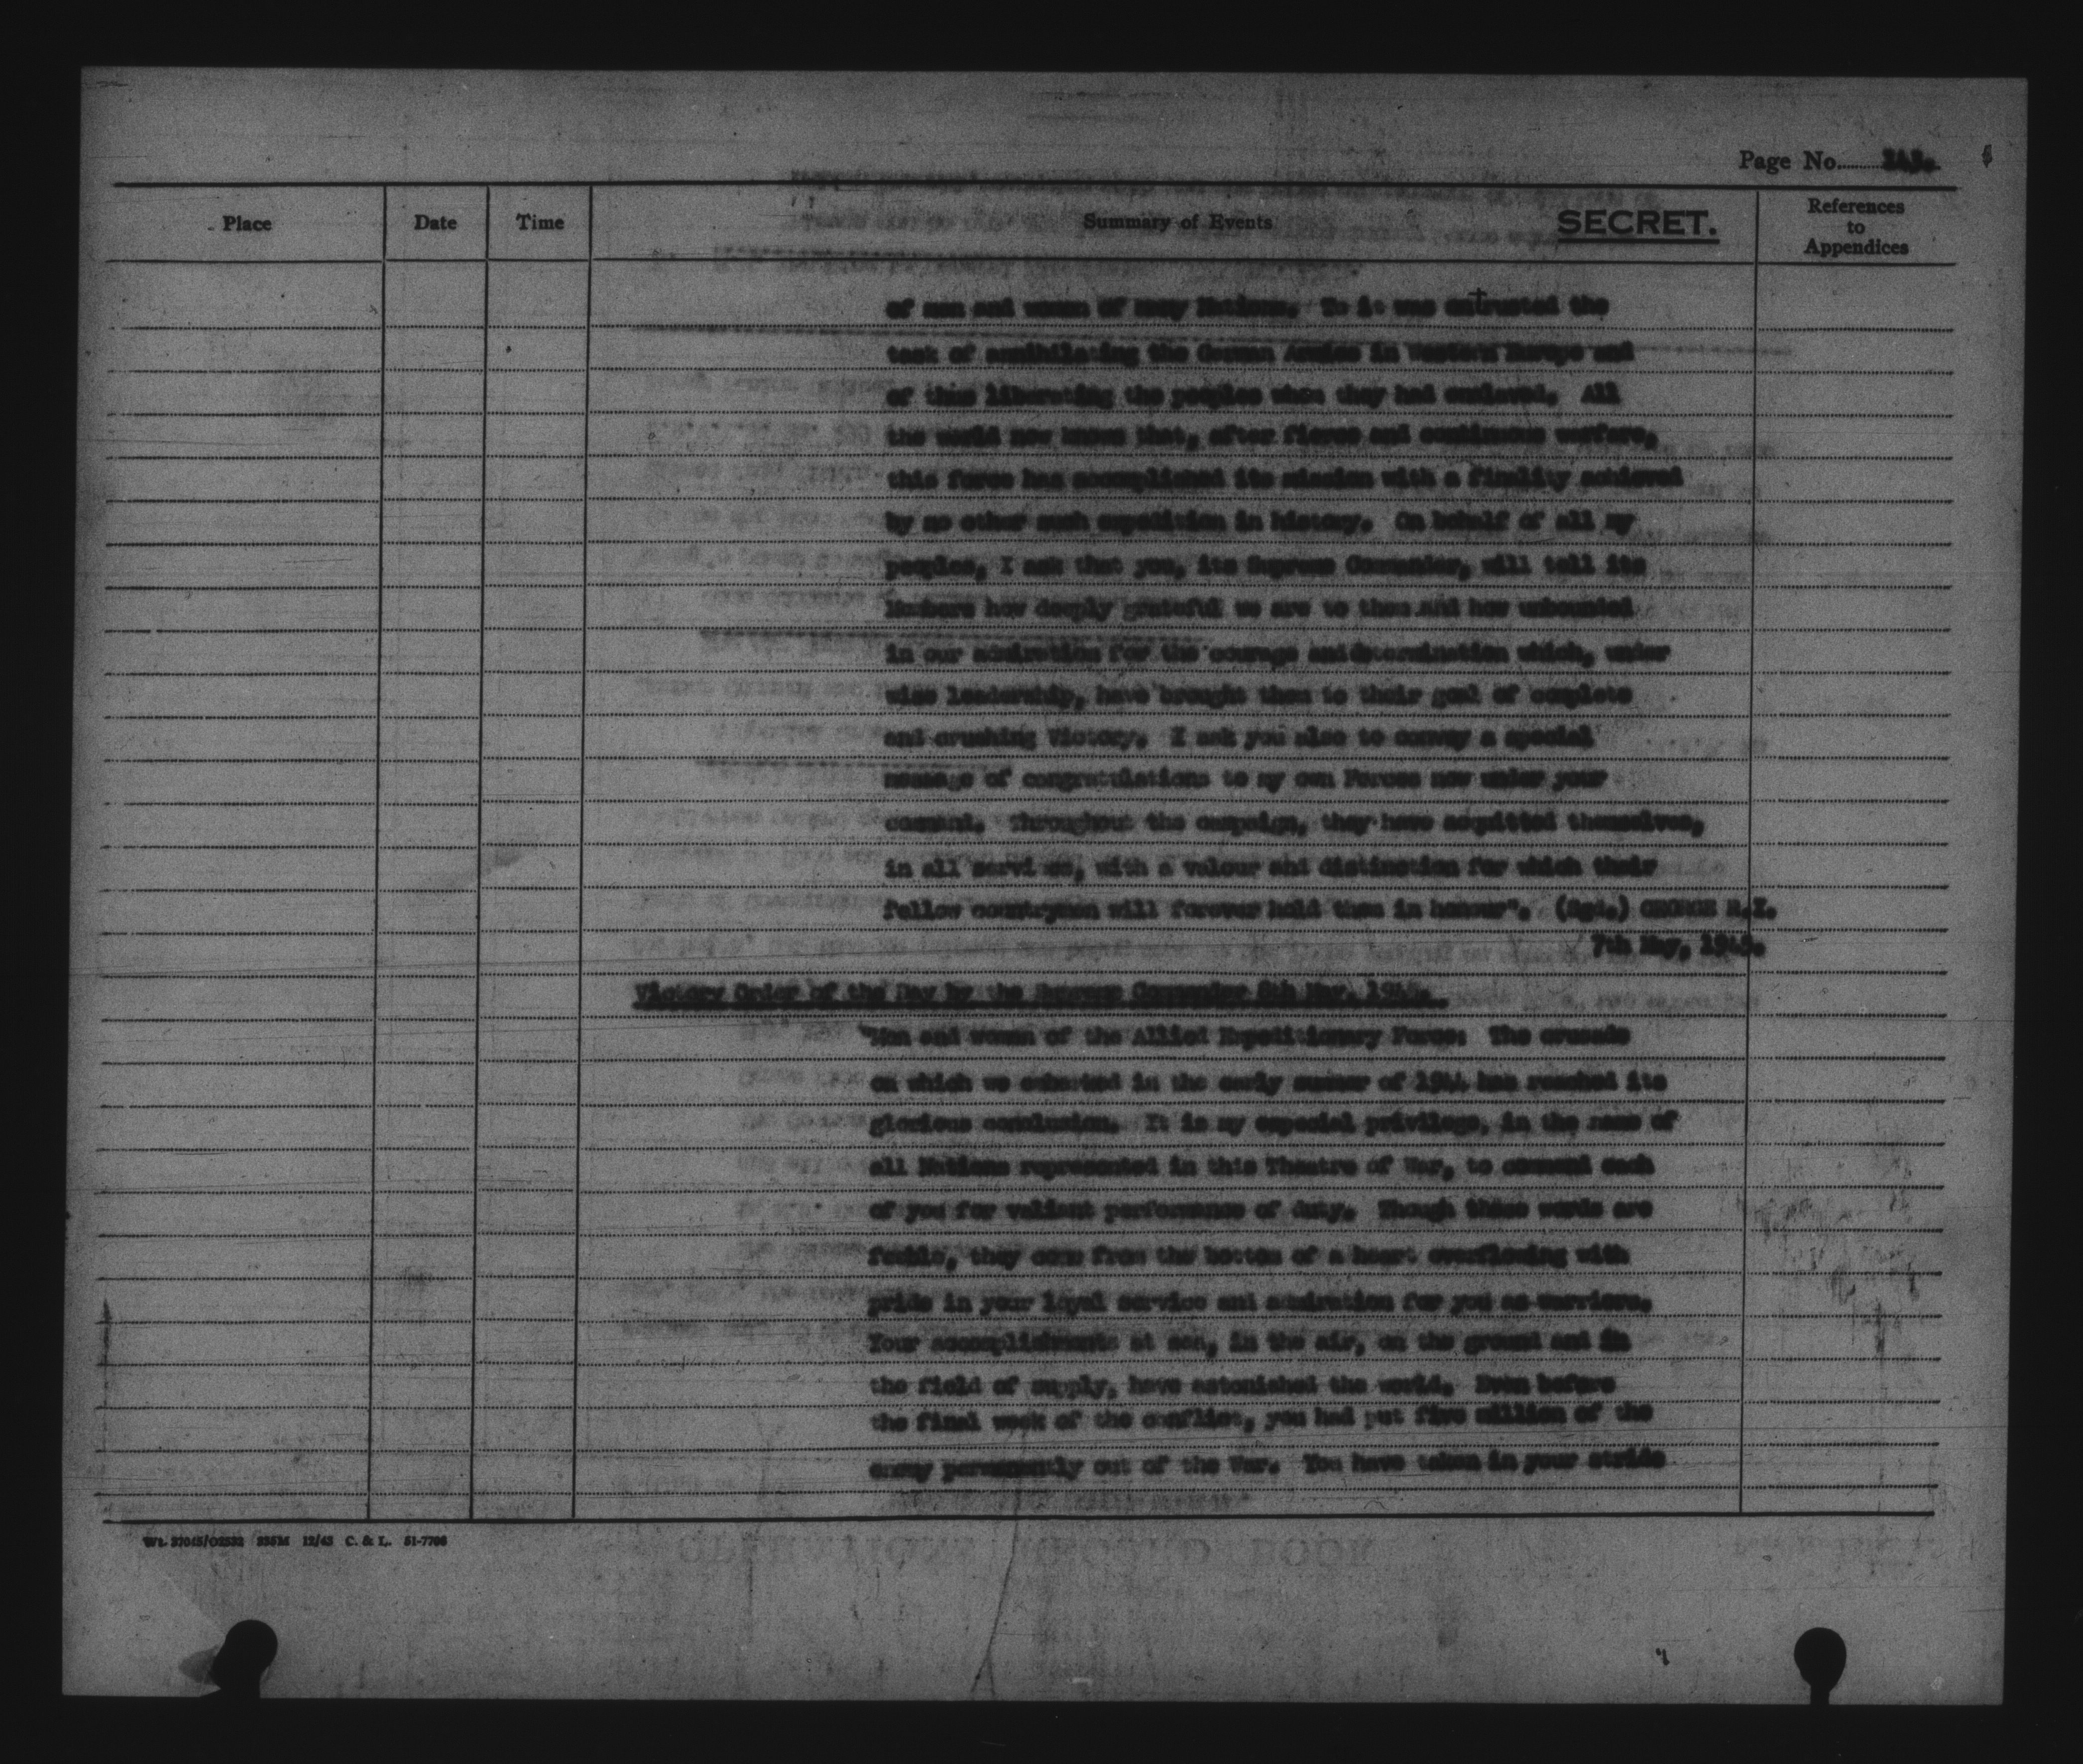 Page No.
Place Date Time Summary of Events SECRET. References to Appendices
of men and women of many Nations. To it was entrusted the
task of annihilating the German Armies in Western Europe and
of thus liberating the peoples whom they had enslaved. All
the world now knows that, after fierce and continuous warfare,
this force has accomplished its mission with a finality achieved
by no other such expedition in history. On behalf of all my
peoples, I ask that you, its Supreme Commander, will tell its
Members how deeply grateful we are to them and how unbounded
in our admiration for the courage and determination which, under
wise leadership, have brought them to their goal of complete
and crushing Victory. I ask you also to convey a special
message of congratulations to my own Forces now under your
command. Throughout the campaign, they have acquitted themselves,
in all services, with a valour and distinction for which their
fellow countrymen will forever hold them in honour". (Sgd.) GEORGE R.I.
7th May, 1945.
Victory Order of the Day by the Supreme Commander 8th May, 1945.
"Men and women of the Allied Expeditionary Force: The crusade
on which we embarked in the early summer of 1944 has reached its
glorious conclusion. It is my especial privilege, in the name of
all Nations represented in this Theatre of War, to commend each
of you for valiant performance of duty. Though these words are
feeble, they come from the bottom of a heart overflowing with
pride in your loyal service and admiration for you as warriors.
Your accomplishments at sea, in the air, on the ground and in
the field of supply, have astonished the world. Even before
the final week of the conflict, you had put five million of the
enemy permanently out of the War. You have taken in your stride
Wt. 37045/O2532 235M 12/43 C. & L. 51-7706